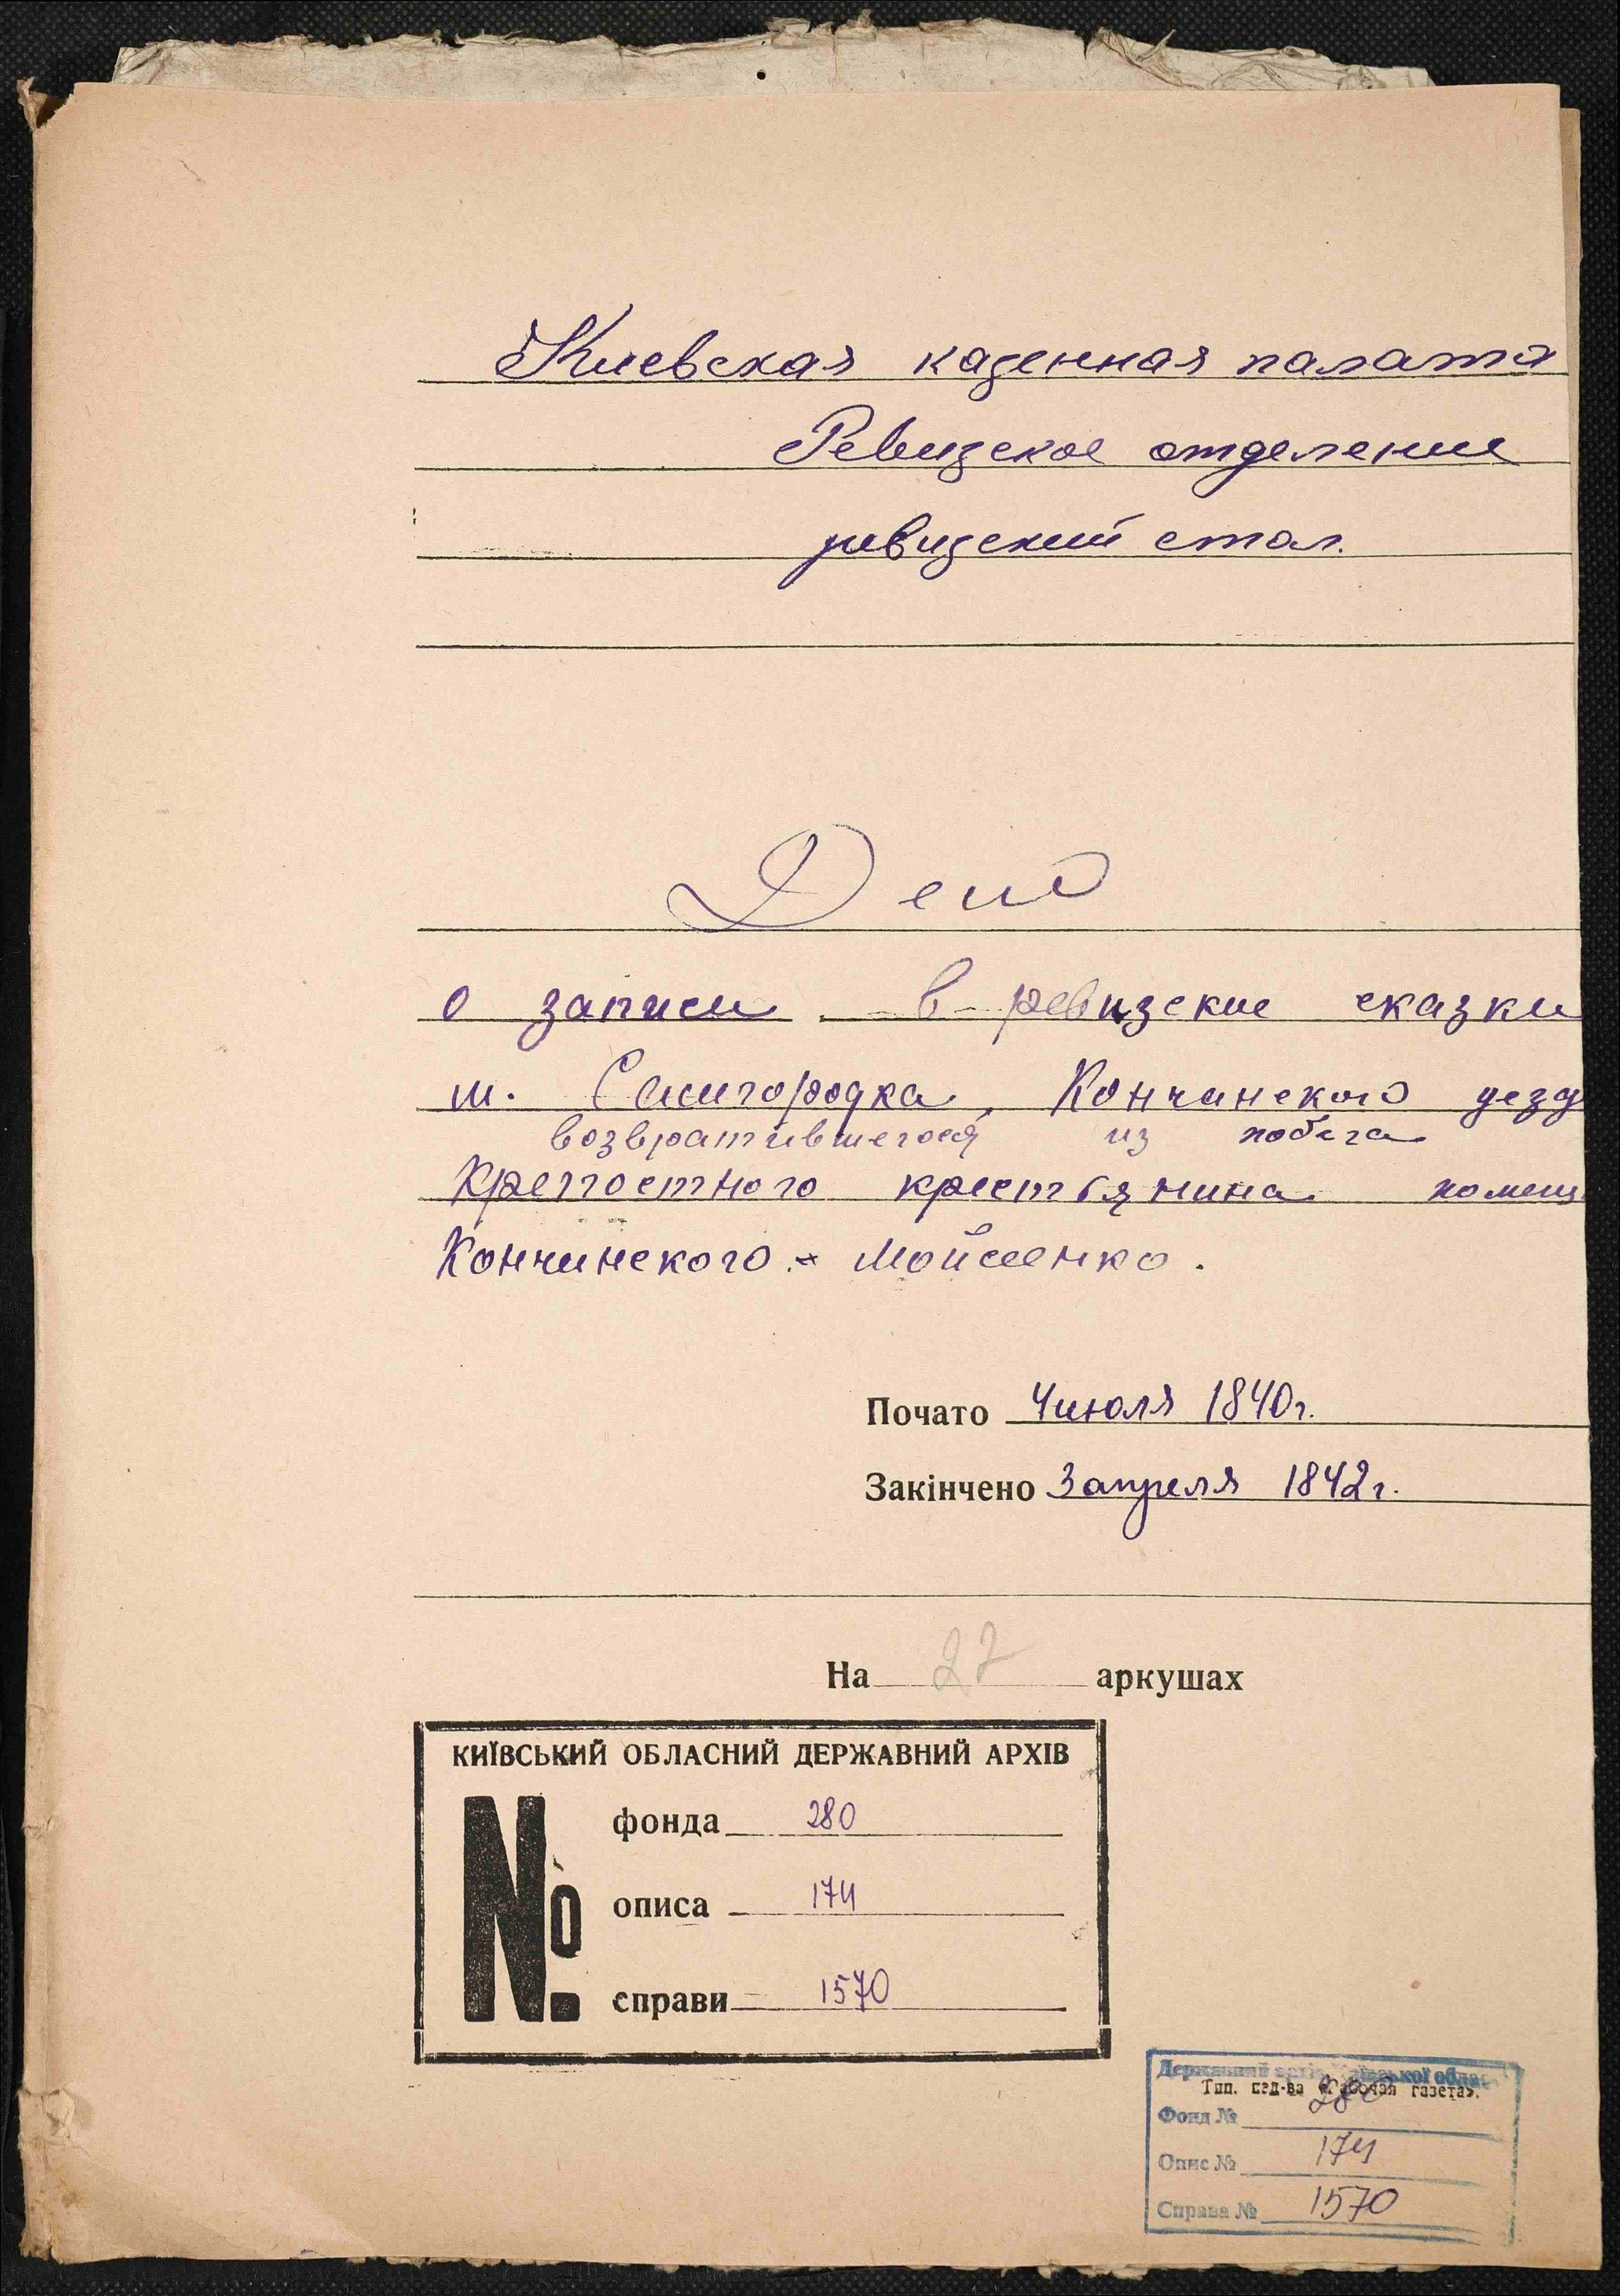 Киевская казенная палата
Ревизское отделение
ревизский стол.
Дело
о записи в ревизские сказки
м. Самгородка, Кончинского уезд
возвратившегося из побега
крепостного крестьянина помещ
Кончинского - Мойсеенко.
Почато 4 июля 1840 г.
Закінчено 3 апреля 1842 г.
На 22 аркушах
КИЇВСЬКИЙ ОБЛАСНИЙ ДЕРЖАВНИЙ АРХІВ
№
фонда 280
описа 174
справи 1570
Державний архів Київської області
Тип. изд-ва «Рабочая газета».
Фонд № 280
Опис № 174
Справа № 1570